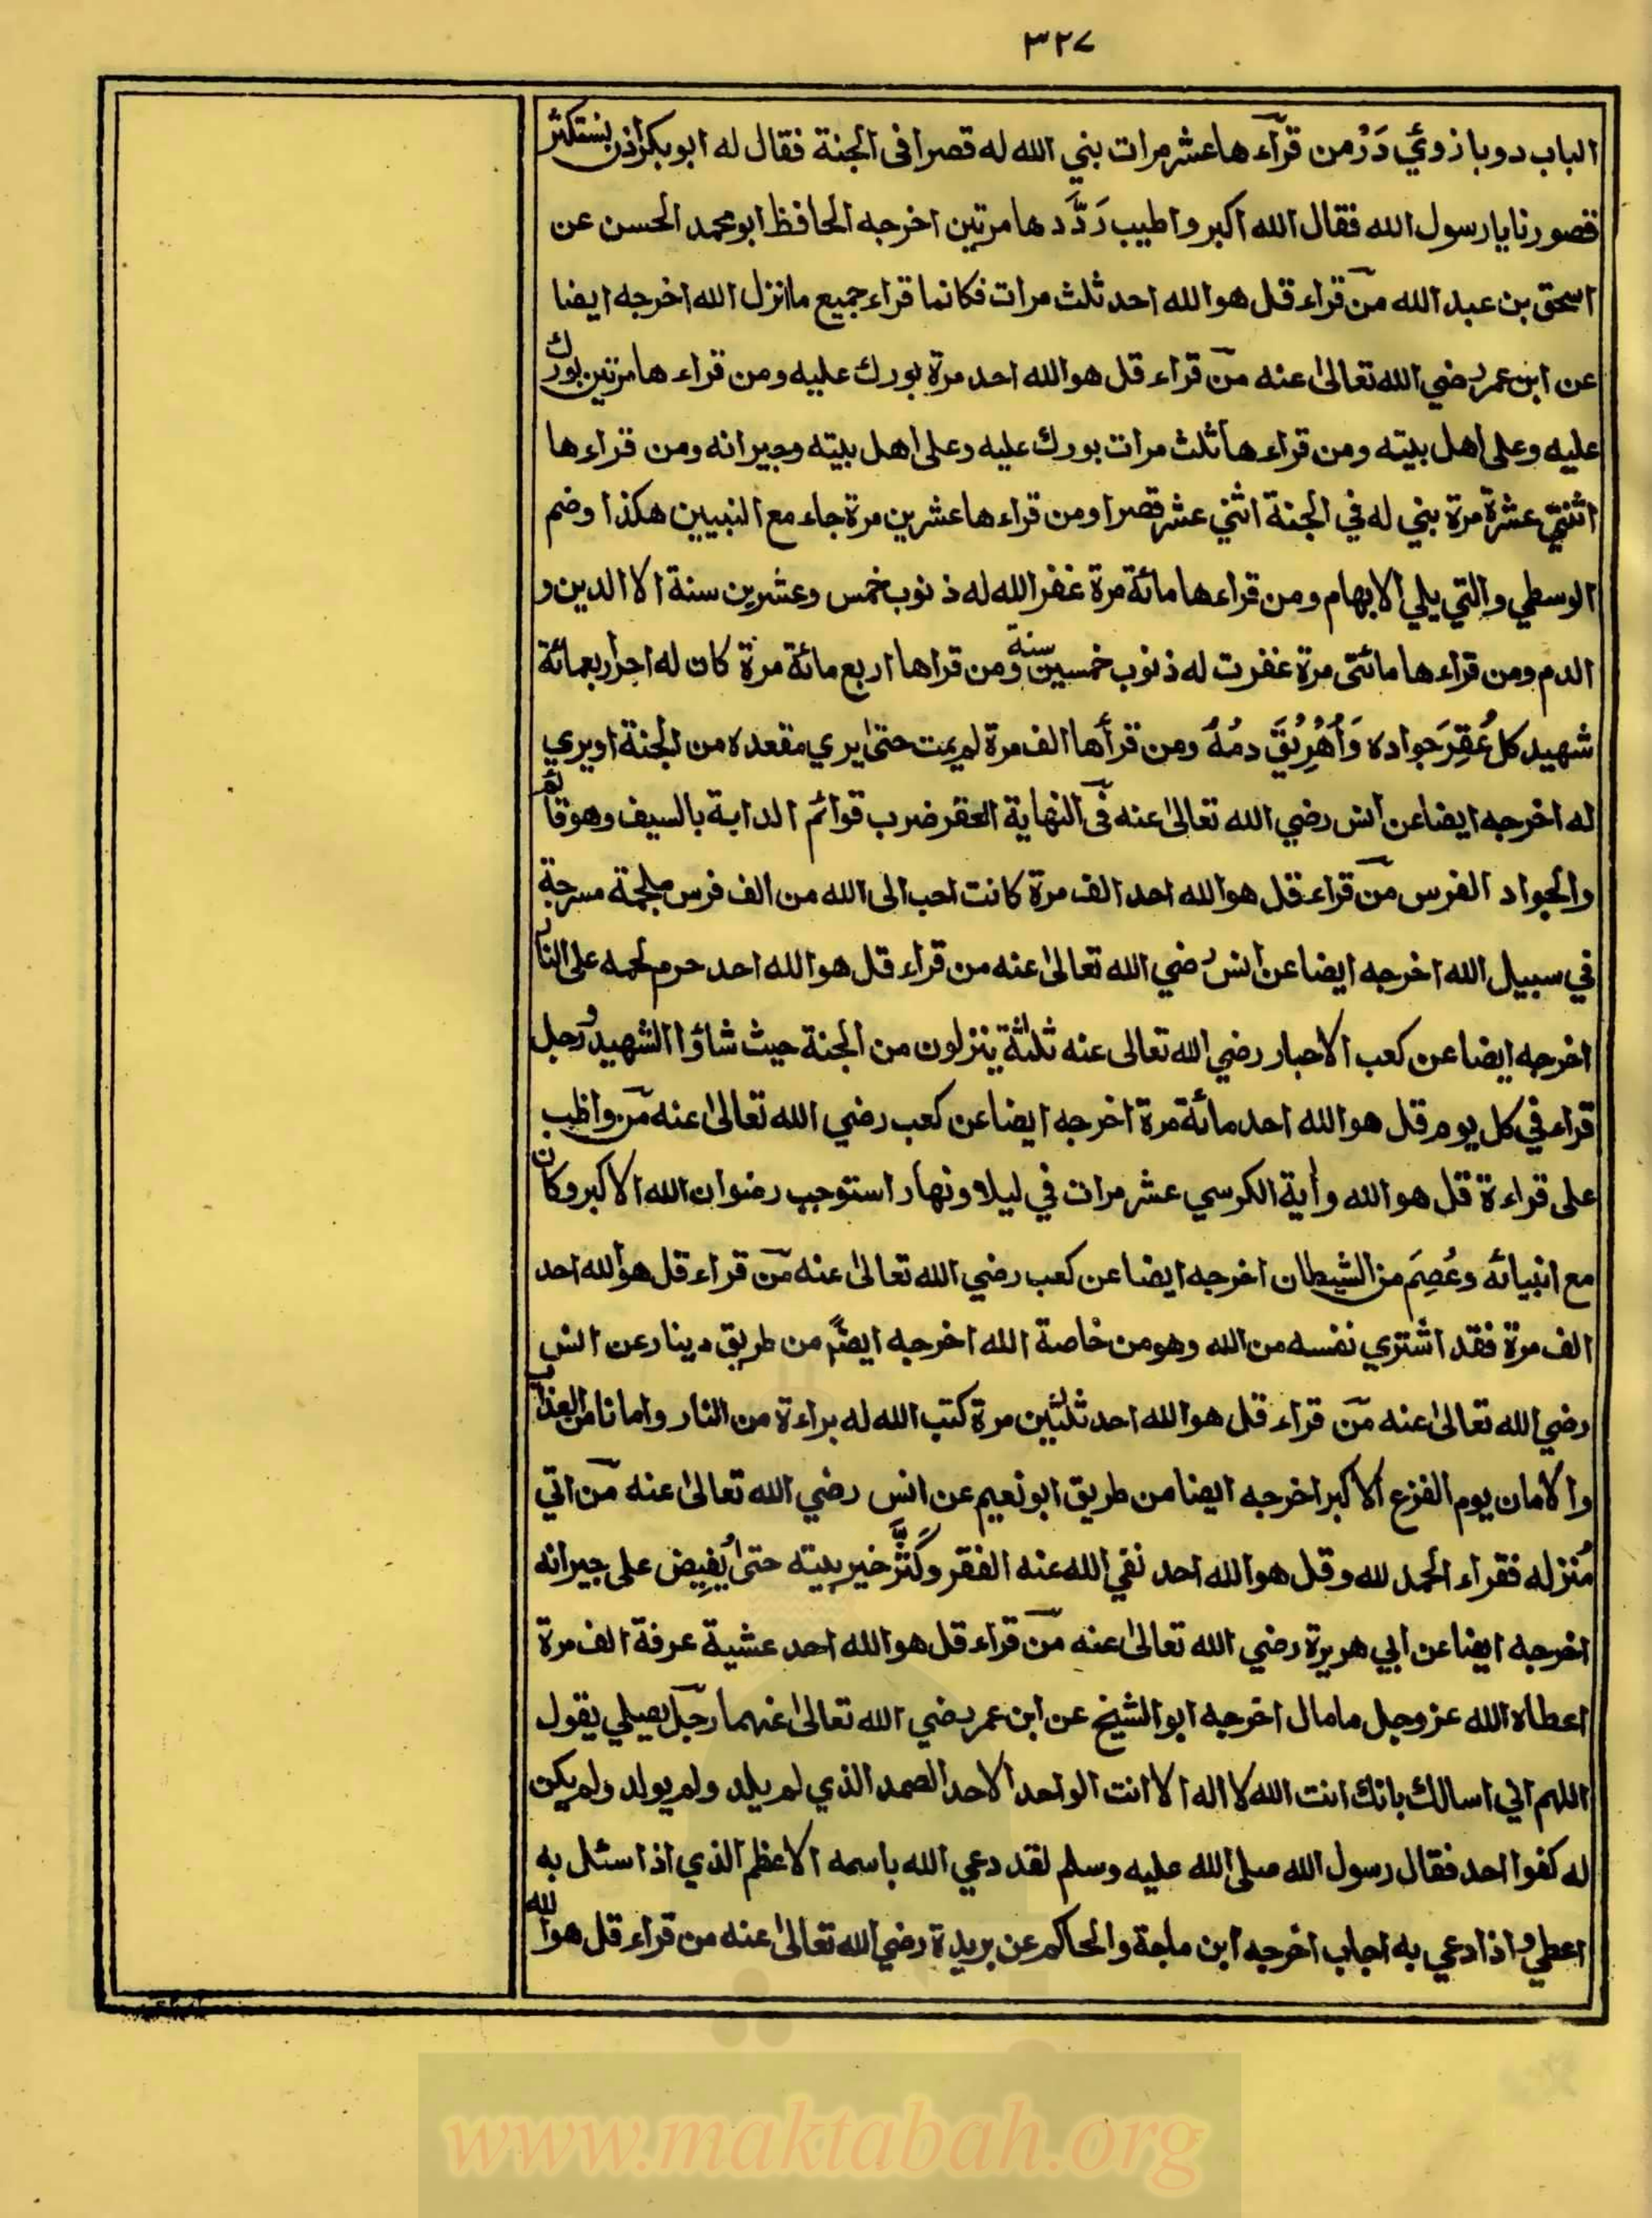 ٣٢٧
الباب دو بازوئي دَرْ من قرآءها عشر مرات بني الله له قصرا في الجنة فقال له ابو بكر اذن نستكثر
قصورنا يا رسول الله فقال الله اكبر واطيب رَدَّدها مرتين اخرجه الحافظ ابو محمد الحسن عن
اسحق بن عبد الله من قراء قل هو الله احد ثلث مرات فكانما قراء جميع ما انزل الله اخرجه ايضا
عن ابن عمر رضي الله تعالى عنه من قراء قل هو الله احد مرة بورك عليه ومن قراءها مرتين بورك
عليه وعلى اهل بيته ومن قراءها ثلث مرات بورك عليه وعلى اهل بيته وجيرانه ومن قراءها
اثنتي عشرة مرة بني له في الجنة اثني عشر قصرا ومن قراءها عشرين مرة جاء مع النبيين هكذا وضم
الوسطي والتي يلي الابهام ومن قراءها مائة مرة غفر الله له ذنوب خمس وعشرين سنة الا الدين و
الدم ومن قراءها مائتى مرة غفرت له ذنوب خمسين سنة ومن قراها اربع مائة مرة كان له اجر اربعمائة
شهيد كل عُقِرَ جواده وَاُهْرِيْقَ دمُهُ ومن قرأها الف مرة لم يمت حتى يري مقعده من الجنة او يري
له اخرجه ايضا عن انس رضي الله تعالى عنه في النهاية العقر ضرب قوائم الدابة بالسيف وهو قائم
والجواد الفرس من قراء قل هو الله احد الف مرة كانت احب الى الله من الف فرس ملجمة مسرجة
في سبيل الله اخرجه ايضا عن انس رضي الله تعالى عنه من قراء قل هو الله احد حرم لحمه على النار
اخرجه ايضا عن كعب الاحبار رضي الله تعالى عنه ثلثة ينزلون من الجنة حيث شاؤا الشهيد ورجل
قراء في كل يوم قل هو الله احد مائة مرة اخرجه ايضا عن كعب رضي الله تعالى عنه من واظب
على قراءة قل هو الله وأية الكرسي عشر مرات في ليلا ونهار استوجب رضوان الله الاكبر وكان
مع انبيائه وعُصِمَ من الشيطان اخرجه ايضا عن كعب رضي الله تعالى عنه من قراء قل هو الله احد
الف مرة فقد اشتري نفسه من الله وهو من خاصة الله اخرجه ايضًا من طريق دينار عن انس
رضي الله تعالى عنه من قراء قل هو الله احد ثلثين مرة كتب الله له براءة من النار وامانا من العذاب
والامان يوم الفزع الاكبر اخرجه ايضا من طريق ابو نعيم عن انس رضي الله تعالى عنه من اتي
مُنزله فقراء الحمد لله وقل هو الله احد نفي الله عنه الفقر وكَثَّرَ خير بيته حتى يُفِيض على جيرانه
اخرجه ايضا عن ابي هريرة رضي الله تعالى عنه من قراء قل هو الله احد عشية عرفة الف مرة
اعطاه الله عز وجل ما مال اخرجه ابو الشيخ عن ابن عمر رضي الله تعالى عنهما رجل يصلي يقول
اللهم اني اسالك بانك انت الله لا اله الا انت الواحد الاحد الصمد الذي لم يلد ولم يولد ولم يكن
له كفوا احد فقال رسول الله صلى الله عليه وسلم لقد دعي الله باسمه الاعظم الذي اذا سئل به
اعطي واذا دعي به اجاب اخرجه ابن ماجة والحاكم عن بريدة رضي الله تعالى عنه من قراء قل هو الله
www.maktabah.org